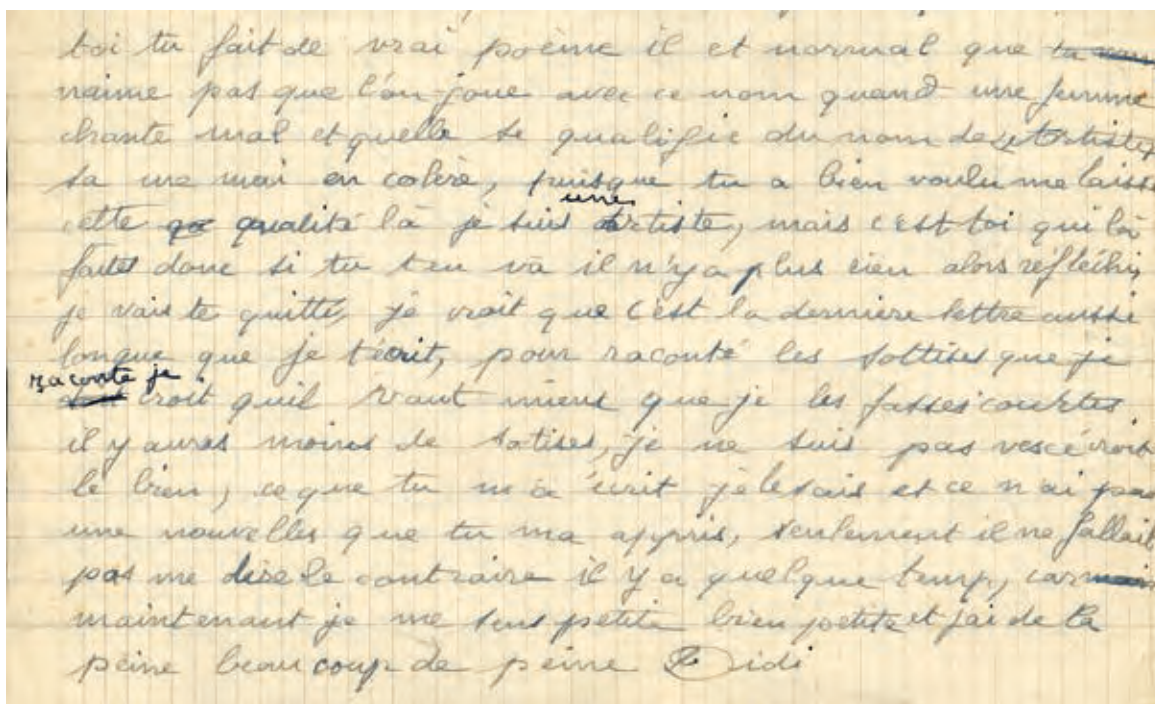 toi tu fait de vrai poème il et normal que tu
naime pas que l'on joue avec ce nom quand une femme
chante mal et quelle se qualifie du nom de
sa me mai en colère, puisque tu a bien voulu me laiss
cette qualité là je suis une artiste, mais c'est toi qui la
faites donc si tu ten va il n'y a plus rien alors réfléchi,
je vais te quitte, je croit que c'est la dernière lettre aussi
longue que je t'écrit, pour raconté les sottises que je
raconte je croit quil vaut mieux que je les fasses courtes
il y auras moins de sotises, je ne suis pas vescé croit
le bien, ce que tu m'a écrit je le sais et ce n'ai pas
une nouvelles que tu ma appris, seulement il ne fallait
pas me dire le contraire il y a quelque temp, car
maintenant je me sens petite bien petite et jai de la
peine beaucoup de peine Didi